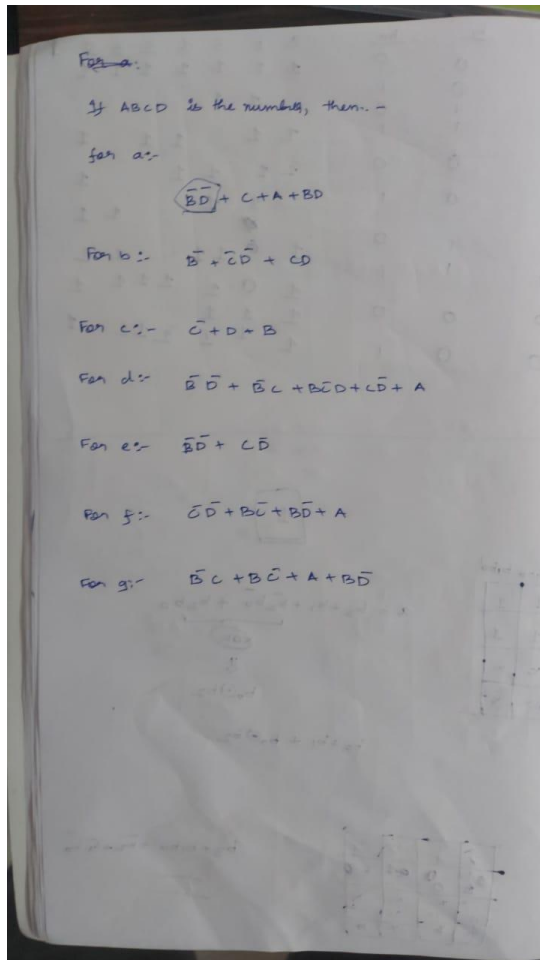 For a:
If ABCD is the number, then.. -
for a:-
B̄D̄ + C + A + BD
For b:- B̄ + C̄D̄ + CD
For c:- C̄ + D + B
For d:- B̄D̄ + B̄C + BC̄D + CD̄ + A
For e:- B̄D̄ + CD̄
For f:- C̄D̄ + BC̄ + BD̄ + A
For g:- B̄C + BC̄ + A + BD̄